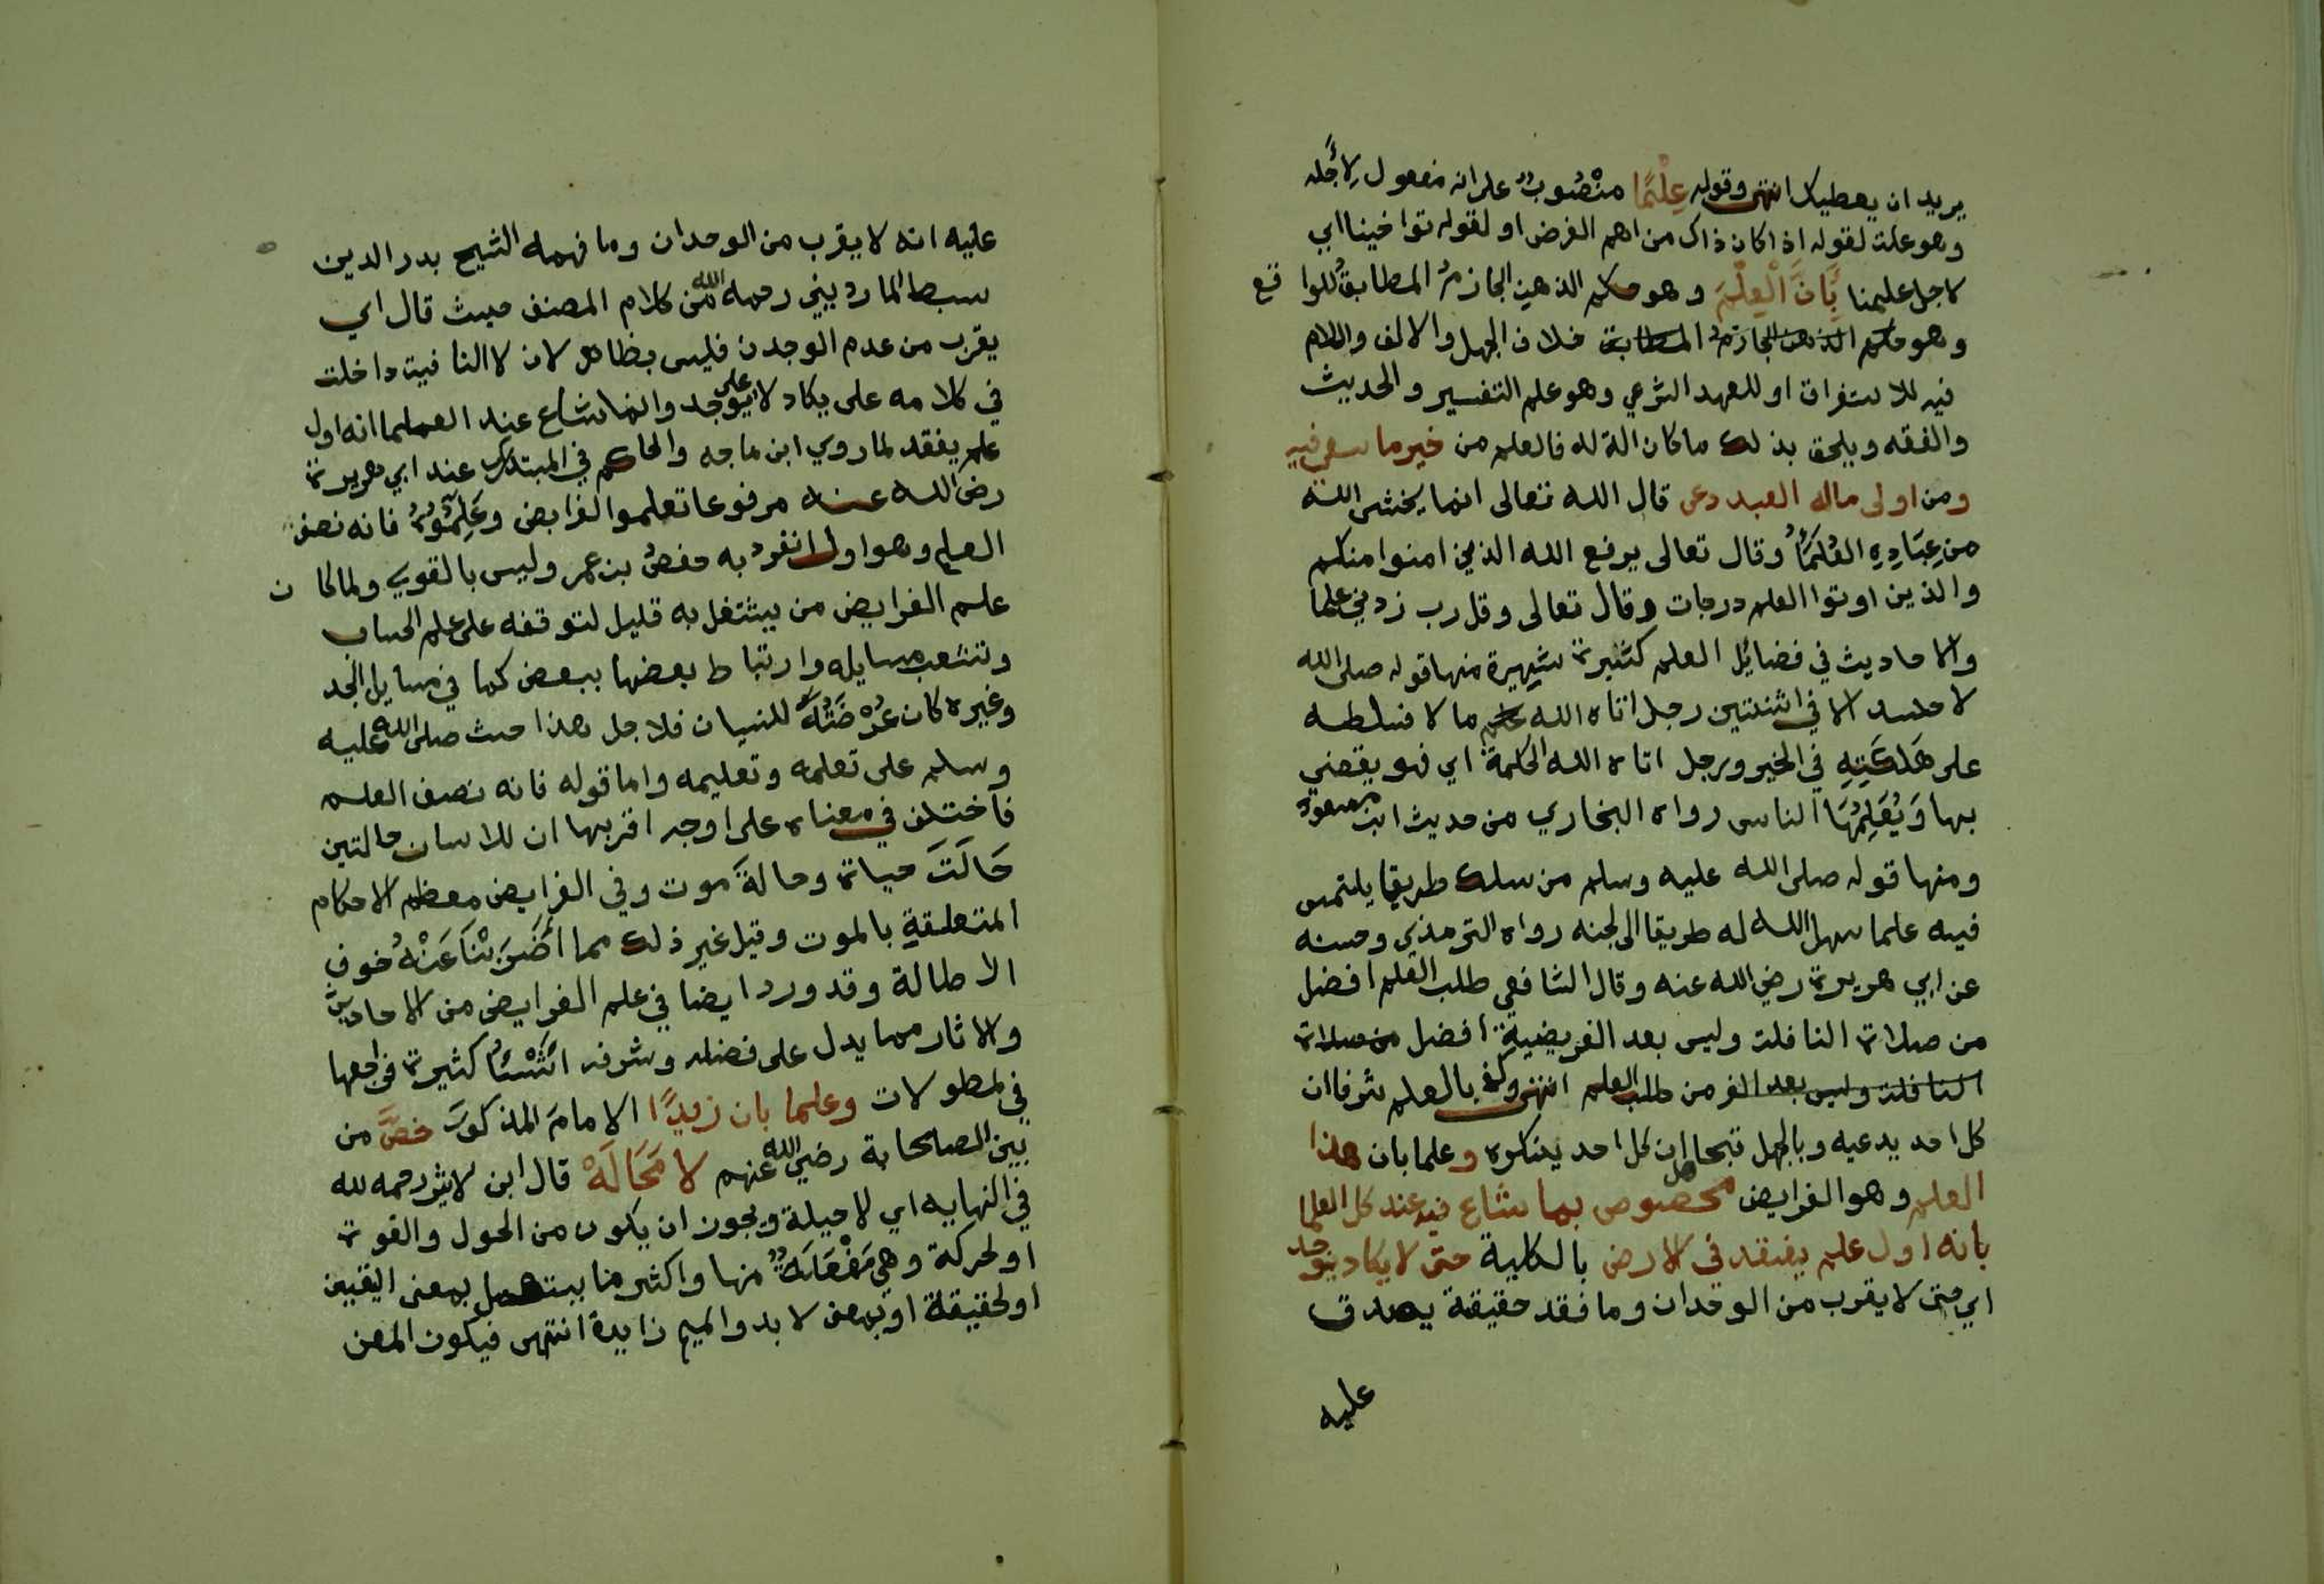 يريد ان يعطيك انتهى وقوله عِلْمًا منْصُوبٌ على انه مفعول لِأَجله
وهو علة لقوله اذا كان ذاك من اهم الغرض او لقوله توا خينا اي
لاجل علمنا بِأَنَّ الْعِلْمَ وهو حكم الذهن الجازمُ المطابقُ للوا قع
وهو حكم الذهن الجازمُ المطابق خلاف الجهل والالف واللام
فيه للاستغراق او للعهد الشرعي وهو علم التفسير والحديث
والفقه ويلحق بذلك ما كان الة له فالعلم من خير ما سعى فيه
ومن اولى ماله العبد دعى قال الله تعالى انما يخشى الله
من عِبَادِهِ العُلَمَاءُ وقال تعالى يرفع الله الذين امنوا منكم
والذين اوتوا العلم درجات وقال تعالى وقل رب زدني علما
والاحاديث في فضائل العلم كثيرة شهيرة منها قوله صلى الله
لا حسد الا في اثنتين رجل اتاه الله ما لا فسلطه
على هَلَكَتِهِ في الخير ورجل اتاه الله الحكمة اي فهو يقضي
بها وَيُعَلِّمُهَا الناس رواه البخاري من حديث ابن مسعود
ومنها قوله صلى الله عليه وسلم من سلك طريقا يلتمس
فيه علما سهل الله له طريقا الى لجنه رواه الترمذي وحسنه
عن ابي هريرة رضي الله عنه وقال الشافعي طلب العلم افضل
من صلاة النافلة وليس بعد الفريضية افضل من صلاة
النافلة وليس بعد الفر من طلب العلم انتهى وكفى بالعلم شرفا ان
كل احد يدعيه وبالجهل قبحا ان كل احد ينكره وعلما بان هذا
العلم وهو الفرايض مخصوص بما شاع فيه عند كل العلما
بانه اول علم يفقد في الارض بالكلية حتى لا يكاد يوجد
اي حتى لا يقرب من الوجدان وما فقد حقيقة يصدق
عليه
عليه انه لا يقرب من الوجدان وما فهمه الشيح بدر الدين
سبط المارديني رحمه الله من كلام المصنف حيث قال اي
يقرب من عدم الوجدن فليس بظاهر لان لا النافية داخلة
في كلامه على يكاد لا على يوجد وانما شاع عند العلما انه اول
علم يفقد لما روي ابن ماجه والحاكم في المبتدرك عند ابي هريرة
رضى الله عنه مرفوعا تعلموا الفرايض وعَلِّمُوهُ فانه نصف
العلم وهو اول انفرد به حفصُ بن عمر وليس بالقوي ولما كا ن
علم الفرايض من يشتغل به قليل لتوقفه على علم الحساب
وتتشعب مسايله وارتباط بعضها ببعض كما في مسايل الجد
وغيره كان عُرْضَةً للنسيان فلاجل هذا حث صلى الله عليه
وسلم على تعلمه وتعليمه واما قوله فانه نصف العلم
فاختلف في معناه على اوجه اقربها ان للانسان حالتين
حَالَةَ حياة وحالةَ موت وفي الفرايض معظم الاحكام
المتعلقةِ بالموت وقيل غير ذلك مما أَضْرَبْنَا عَنْهُ خوف
الاطالة وقد ورد ايضا في علم الفرايض من الاحاديث
والاثار مما يدل على فضله وشرفه اشْيَاءُ كثيرة فراجعها
في لمطولات وعلما بان زيدًا الامامَ المذكورَ خصَّ من
بين الصحابة رضي الله عنهم لا مَحَالَهْ قال ابن لاثير رحمه لله
في النهايه اي لا حيلة ويجوز ان يكون من الحول والقوة
اولحركة وهي مَفْعَلَةٌ منها واكثر منا يستعمل بمعنى اليقين
اولحقيقة او بمعنى لا بد والميم زايدة انتهى فيكون المعن